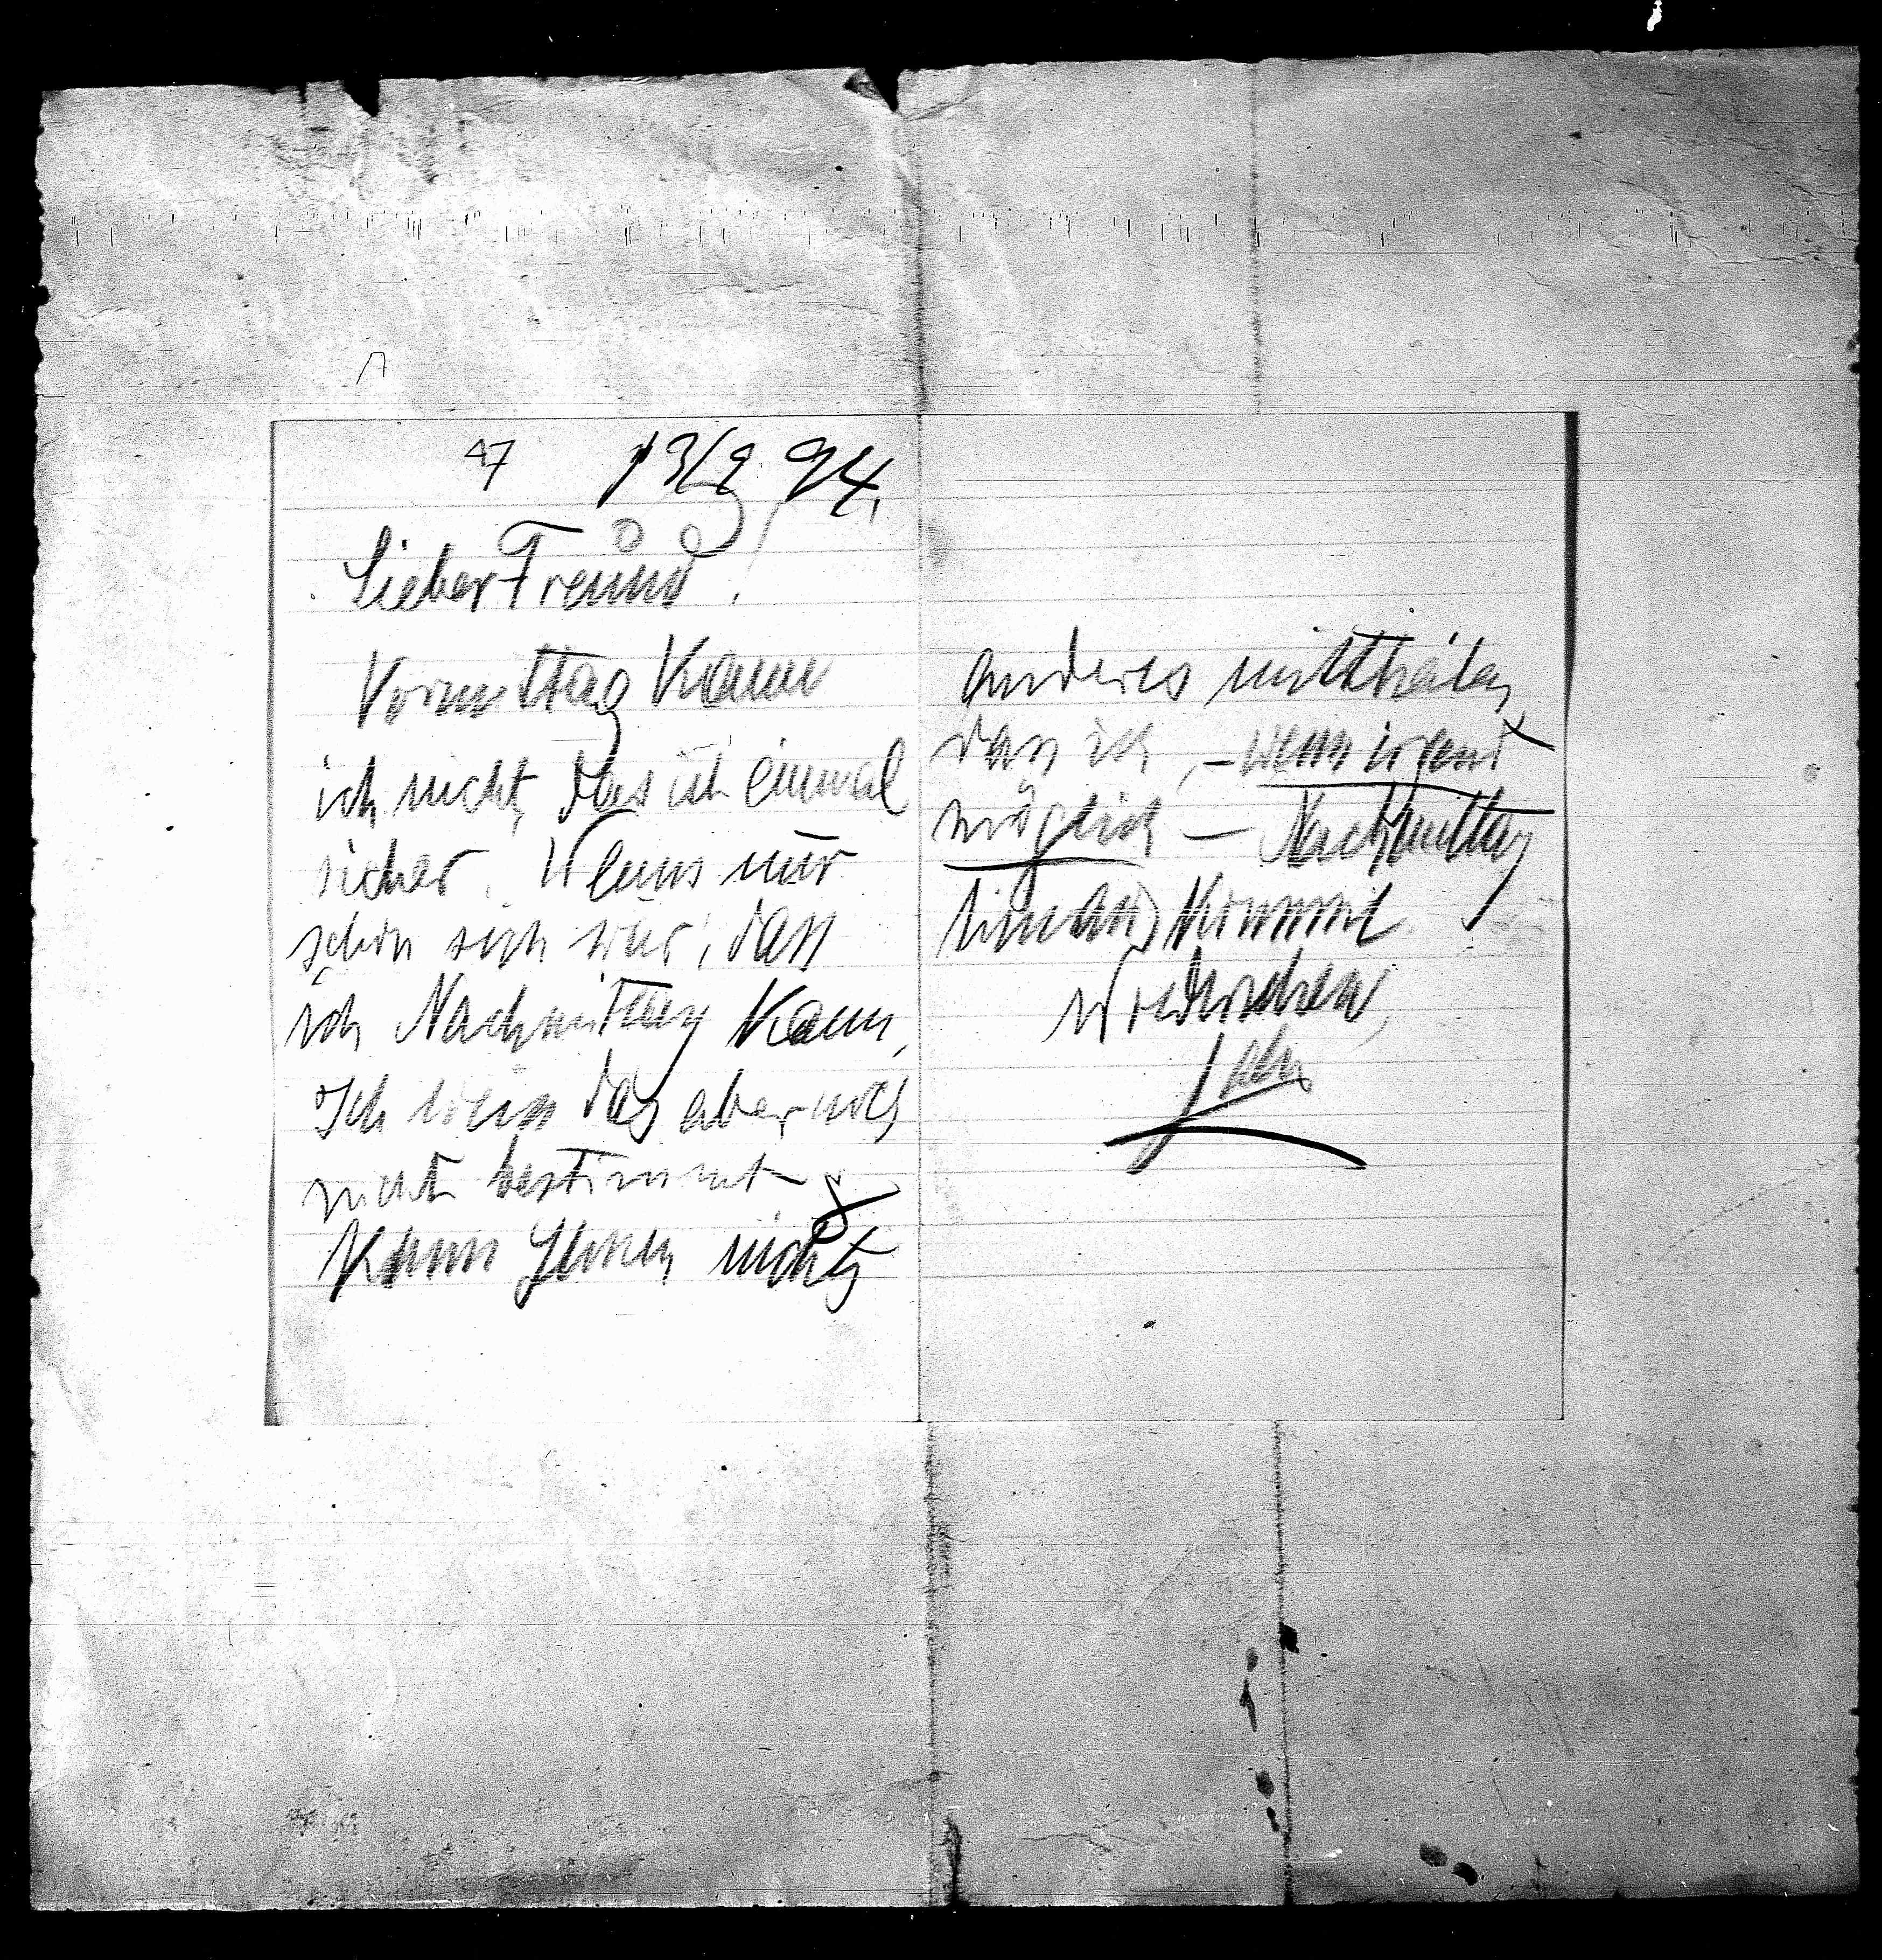 47 13/2 94.
Lieber Freund!
Vormittag kann
ich nicht, das ist einmal
sicher. Wenns nur
schon sich wär, dass
ich Nachmittag kann,
Ich weiss das aber noch
nicht bestimmt &
kann Ihnen nichts
Anderes mittheilen,
dass ich, – wenn irgend
möglich – Nachmittag
kommt